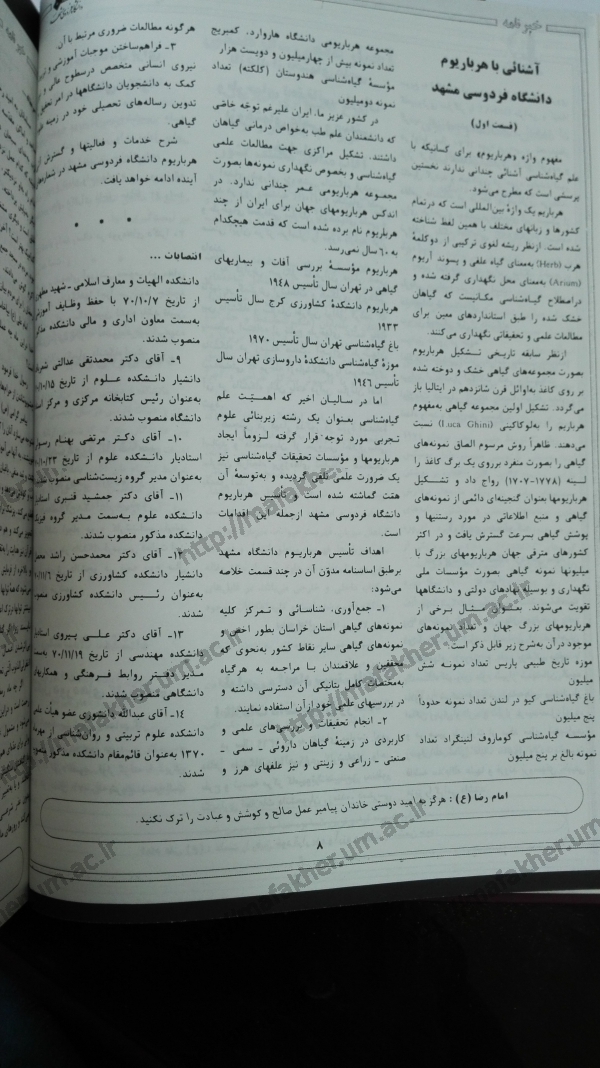 خبر نامه
آشنائی با هرباریوم
دانشگاه فردوسی مشهد
(قسمت اول)
مفهوم واژه «هرباریوم» برای کسانیکه با
علم گیاه‌شناسی آشنائی چندانی ندارند نخستین
پرسشی است که مطرح می‌شود.
هرباریم یک واژهٔ بین‌المللی است که درتمام
کشورها و زبانهای مختلف با همین لفظ شناخته
شده است. ازنظر ریشه لغوی ترکیبی از دوکلمهٔ
هرب (Herb) به‌معنای گیاه علفی و پسوند آریوم
(Arium) به‌معنای محل نگهداری گرفته شده و
دراصطلاح گیاه‌شناسی مکانیست که گیاهان
خشک شده را طبق استانداردهای معین برای
مطالعات علمی و تحقیقاتی نگهداری می‌کنند.
ازنظر سابقه تاریخی تشکیل هرباریوم
بصورت مجموعه‌های گیاهی خشک و دوخته شده
بر روی کاغذ به‌اوائل قرن شانزدهم در ایتالیا باز
می‌گردد. تشکیل اولین مجموعه گیاهی به‌مفهوم
هرباریم را به‌لوکاکینی (Luca Ghini) نسبت
می‌دهند. ظاهراً روش مرسوم الصاق نمونه‌های
گیاهی را بصورت منفرد برروی یک برگ کاغذ را
لینه (۱۷۷۸-۱۷۰۷) رواج داد و تشکیل
هرباریومها بعنوان گنجینه‌ای دائمی از نمونه‌های
گیاهی و منبع اطلاعاتی در مورد رستنیها و
پوشش گیاهی بسرعت گسترش یافت و در اکثر
کشورهای مترقی جهان هرباریومهای بزرگ با
میلیونها نمونه گیاهی بصورت مؤسسات ملی
نگهداری و بوسیله نهادهای دولتی و دانشگاهها
تقویت می‌شوند. بعنوان مثال برخی از
هرباریومهای بزرگ جهان و تعداد نمونه‌های
موجود درآن به‌شرح زیر قابل ذکر است.
موزه تاریخ طبیعی پاریس تعداد نمونه شش
میلیون
باغ گیاه‌شناسی کیو در لندن تعداد نمونه حدوداً
پنج میلیون
مؤسسه گیاه‌شناسی کوماروف لنینگراد تعداد
نمونه بالغ بر پنج میلیون
مجموعه هرباریومی دانشگاه هاروارد، کمبریج
تعداد نمونه بیش از چهارمیلیون و دویست هزار
مؤسسهٔ گیاه‌شناسی هندوستان (کلکته) تعداد
نمونه دومیلیون
در کشور عزیز ما، ایران علیرغم توجّه خاصّی
که دانشمندان علم طب به‌خواص درمانی گیاهان
داشتند. تشکیل مراکزی جهت مطالعات علمی
گیاهشناسی و بخصوص نگهداری نمونه‌ها بصورت
مجموعه هرباریومی عمر چندانی ندارد. در
اندکس هرباریومهای جهان برای ایران از چند
هرباریوم نام برده شده است که قدمت هیچکدام
به ٦۰ سال نمی‌رسد.
هرباریوم مؤسسهٔ بررسی آفات و بیماریهای
گیاهی در تهران سال تأسیس ۱۹٤۸
هرباریوم دانشکدهٔ کشاورزی کرج سال تأسیس
۱۹۳۳
باغ گیاه‌شناسی تهران سال تأسیس ۱۹۷۰
موزهٔ گیاه‌شناسی دانشکدهٔ داروسازی تهران سال
تأسیس ۱۹٤٦
اما در سالیان اخیر که اهمیّت علم
گیاه‌شناسی بعنوان یک رشته زیربنائی علوم
تجربی مورد توجه قرار گرفته لزوماً ایجاد
هرباریومها و مؤسسات تحقیقات گیاه‌شناسی نیز
یک ضرورت علمی تلقی گردیده و به‌توسعهٔ آن
همّت گماشته شده است و تأسیس هرباریوم
دانشگاه فردوسی مشهد ازجمله این اقدامات
است.
اهداف تأسیس هرباریوم دانشگاه مشهد
برطبق اساسنامه مدوّن آن در چند قسمت خلاصه
می‌شود:
۱- جمع‌آوری، شناسائی و تمرکز کلیه
نمونه‌های گیاهی استان خراسان بطور اخص و
نمونه‌های گیاهی سایر نقاط کشور به‌نحوی که
محققین و علاقمندان با مراجعه به هرگیاه
به‌مختصات کامل بتانیکی آن دسترسی داشته و
در بررسیهای علمی خود ازآن استفاده نمایند.
۲- انجام تحقیقات و بررسی‌های علمی و
کاربردی در زمینهٔ گیاهان داروئی ـ سمی ـ
صنعتی ـ زراعی و زینتی و نیز علفهای هرز و
هرگونه مطالعات ضروری مرتبط با آن
۳- فراهم‌ساختن موجبات آموزشی و
نیروی انسانی متخصص درسطوح عالی و
کمک به دانشجویان دانشگاهها در امر
تدوین رساله‌های تحصیلی خود در زمینه
گیاهی.
شرح خدمات و فعالیتها و گسترش
هرباریوم دانشگاه فردوسی مشهد در
آینده ادامه خواهد یافت.
* * *
انتصابات ...
دانشکده الهیات و معارف اسلامی ـ شهید
از تاریخ ۷۰/۱۰/۷ با حفظ وظایف
به‌سمت معاون اداری و مالی دانشکده
منصوب شدند.
۹ـ آقای دکتر محمدتقی عدالتی
دانشیار دانشکده علوم از تاریخ
به‌عنوان رئیس کتابخانه مرکزی و مرکز
دانشگاه منصوب شدند.
۱۰ـ آقای دکتر مرتضی بهنام
استادیار دانشکده علوم از تاریخ
به‌عنوان مدیر گروه زیست‌شناسی منصوب
۱۱ـ آقای دکتر جمشید قنبری
دانشکده علوم به‌سمت مدیر گروه
دانشکده مذکور منصوب شدند.
۱۲ـ آقای دکتر محمدحسن راشد
دانشیار دانشکده کشاورزی از تاریخ
به‌عنوان رئیس دانشکده کشاورزی
شدند.
۱۳ـ آقای دکتر علی پیروی
دانشکده مهندسی از تاریخ ۷۰/۱۱/۱۹
مدیر دفتر روابط فرهنگی و
دانشگاهی منصوب شدند.
۱٤ـ آقای عبدالله دانشوری عضو هیأت
دانشکده علوم تربیتی و روان‌شناسی از
۱۳۷۰ به‌عنوان قائم‌مقام دانشکده مذکور
شدند.
امام رضا (ع) : هرگز به امید دوستی خاندان پیامبر عمل صالح و کوشش و عبادت را ترک نکنید.
۸
http://mafakher.um.ac.ir
http://mafakher.um.ac.ir